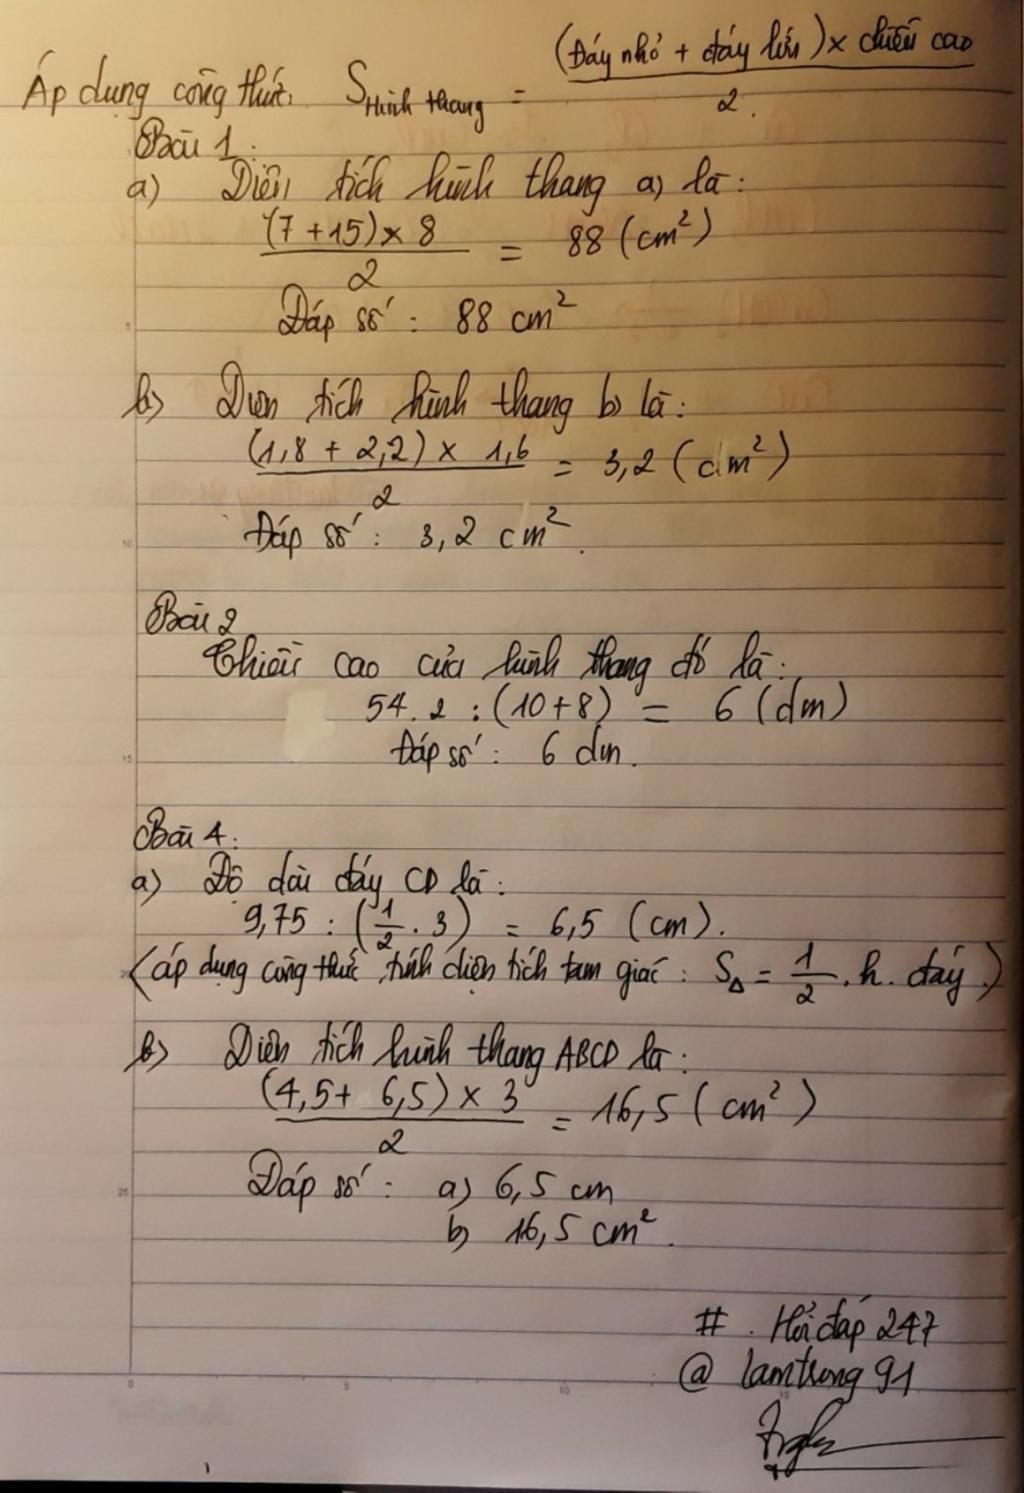 Áp dụng công thức: S Hình thang = (Đáy nhỏ + đáy lớn) x chiều cao / 2.
Bài 1:
a) Diện tích hình thang a) là:
(7 + 15) x 8 / 2 = 88 (cm²)
Đáp số: 88 cm²
b) Diện tích hình thang b) là:
(1,8 + 2,2) x 1,6 / 2 = 3,2 (dm²)
Đáp số: 3,2 cm².
Bài 2
Chiều cao của hình thang đó là:
54.2 : (10+8) = 6 (dm)
Đáp số: 6 dm.
Bài 4:
a) Độ dài đáy CD là:
9,75 : (1/2 . 3) = 6,5 (cm).
(áp dụng công thức tính diện tích tam giác: S∆ = 1/2 . h. đáy.)
b) Diện tích hình thang ABCD là:
(4,5+ 6,5) x 3 / 2 = 16,5 (cm²)
Đáp số: a) 6,5 cm
b) 16,5 cm².
# . Hỏi đáp 247
@ lamtrong 91